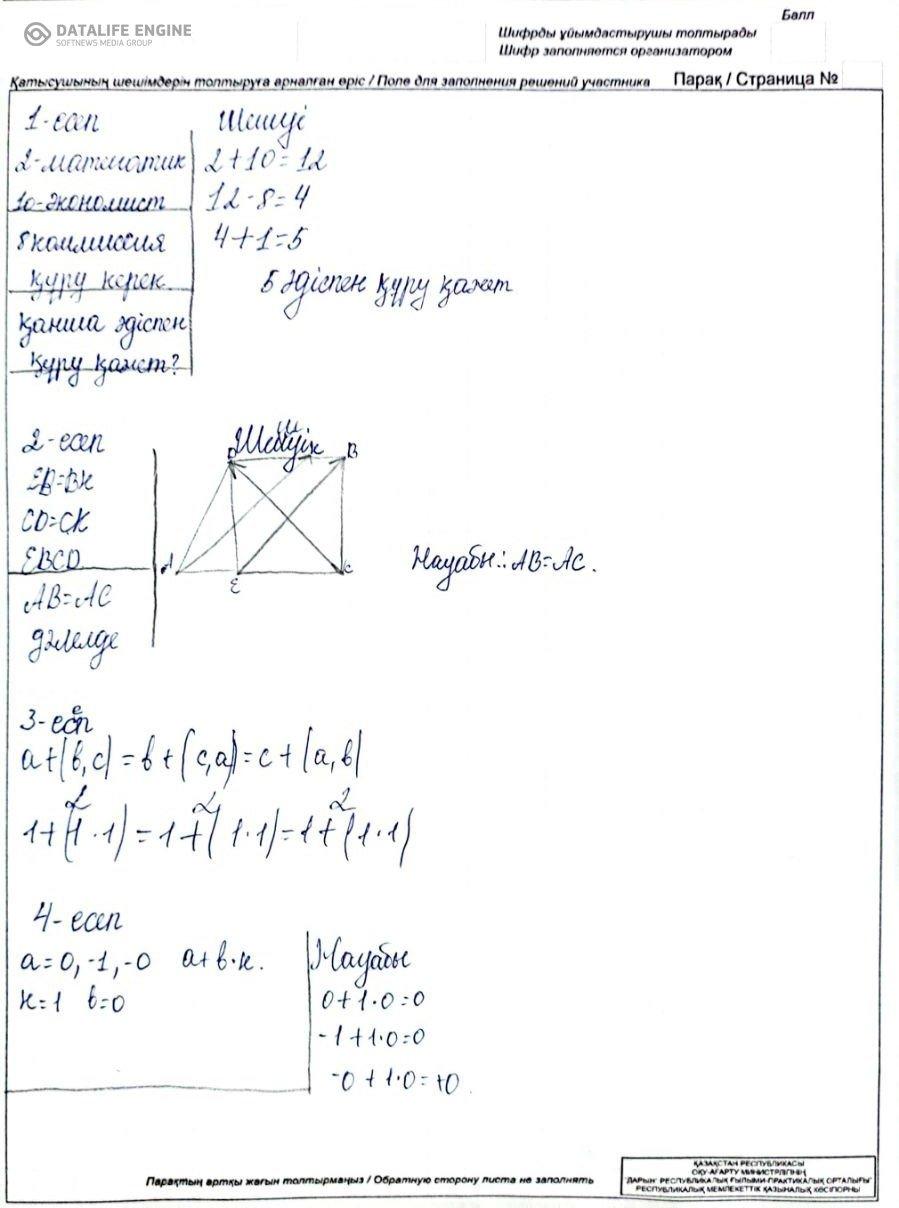 DATALIFE ENGINE
SOFTNEWS MEDIA GROUP
Балл
Шифрды ұйымдастырушы толтырады
Шифр заполняется организатором
Қатысушының шешімдерін толтыруға арналған өріс / Поле для заполнения решений участника
Парақ / Страница №
1-есеп
Шешуі
2-математик
2+10=12
10-экономист
12-8=4
8 коммиссия
4+1=5
құру керек
5 әдіспен құру қажет
Қанша әдіспен
құру қажет?
2-есеп
Шешуі:
EB=BK
CD=CK
EBCD
AB=AC
дәлелде
B
A
E
C
Жауабы: AB=AC.
3-есеп
a+(b,c)=b+(c,a)=c+(a,b)
2 2 2
1+(1·1)=1+(1·1)=1+(1·1)
4-есеп
a=0,-1,-0 a+b·к.
к=1 b=0
Жауабы
0+1·0=0
-1+1·0=0
-0+1·0=+0.
Парақтың артқы жағын толтырмаңыз / Обратную сторону листа не заполнять
ҚАЗАҚСТАН РЕСПУБЛИКАСЫ
ОҚУ-АҒАРТУ МИНИСТРЛІГІНІҢ
"ДАРЫН" РЕСПУБЛИКАЛЫҚ ҒЫЛЫМИ-ПРАКТИКАЛЫҚ ОРТАЛЫҒЫ"
РЕСПУБЛИКАЛЫҚ МЕМЛЕКЕТТІК ҚАЗЫНАЛЫҚ КӘСІПОРНЫ